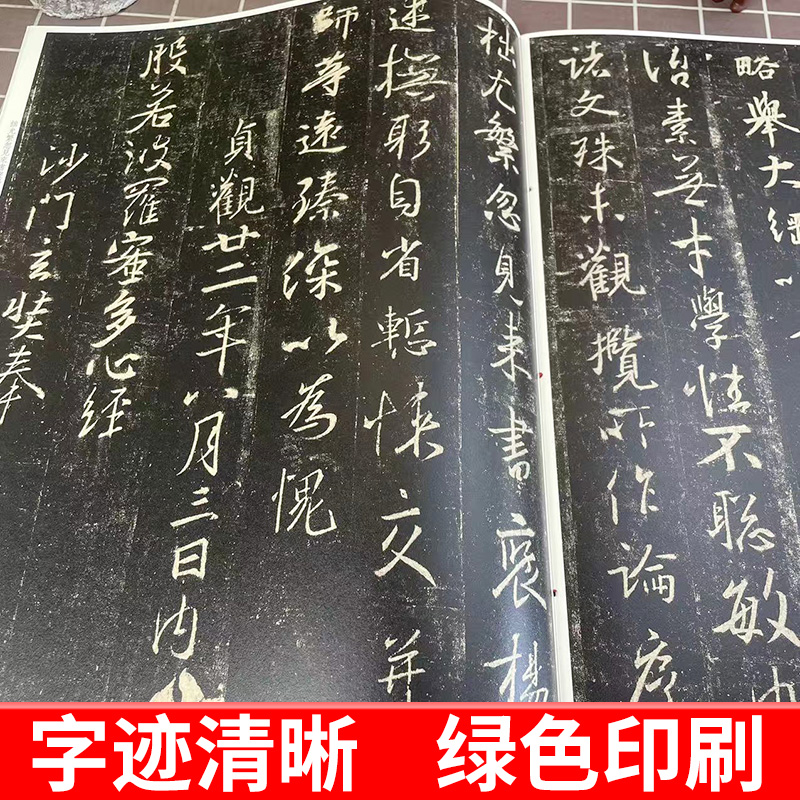 略舉大綱以
治素無才學性不聡敏内
諸文殊未觀攬所作論序
拙尤繁忽見来書褒揚
述撫躬自省慙悚交并
師等遠臻深以為愧
貞觀廿二年八月三日内
般若波羅蜜多心經
沙門玄奘奉
字迹清晰 绿色印刷